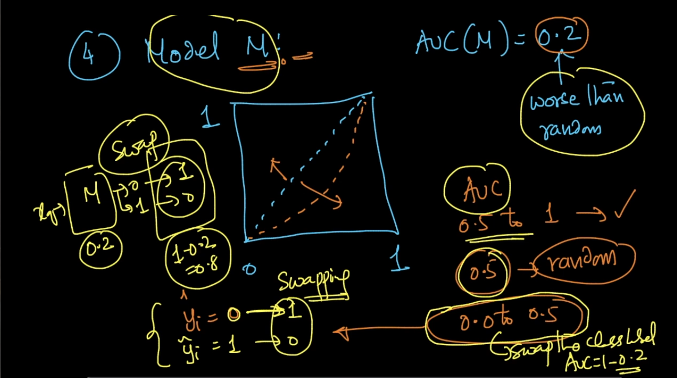 ④ Model M:
AUC(M) = 0.2
worse than
random
1
Swap
xq → M → 0 → 1
→ 1 → 0
0.2
1-0.2
=0.8
0
1
AUC
0.5 to 1 → ✓
0.5 → random
0.0 to 0.5
swap the class label
AUC=1-0.2
Swapping
ŷi = 0 → 1
ŷi = 1 → 0